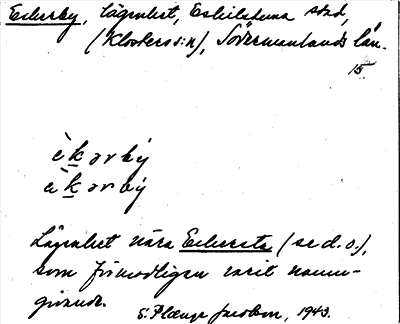 Eckersby, lägenhet, Eskilstuna stad,
(Klosters s:n), Södermanlands län.
15
è k ər bý
è k ər bý
Lägenhet nära Eckersta (se d.o.),
som förmodligen varit namn-
givande.
S. Plænge Jacobson, 1943.